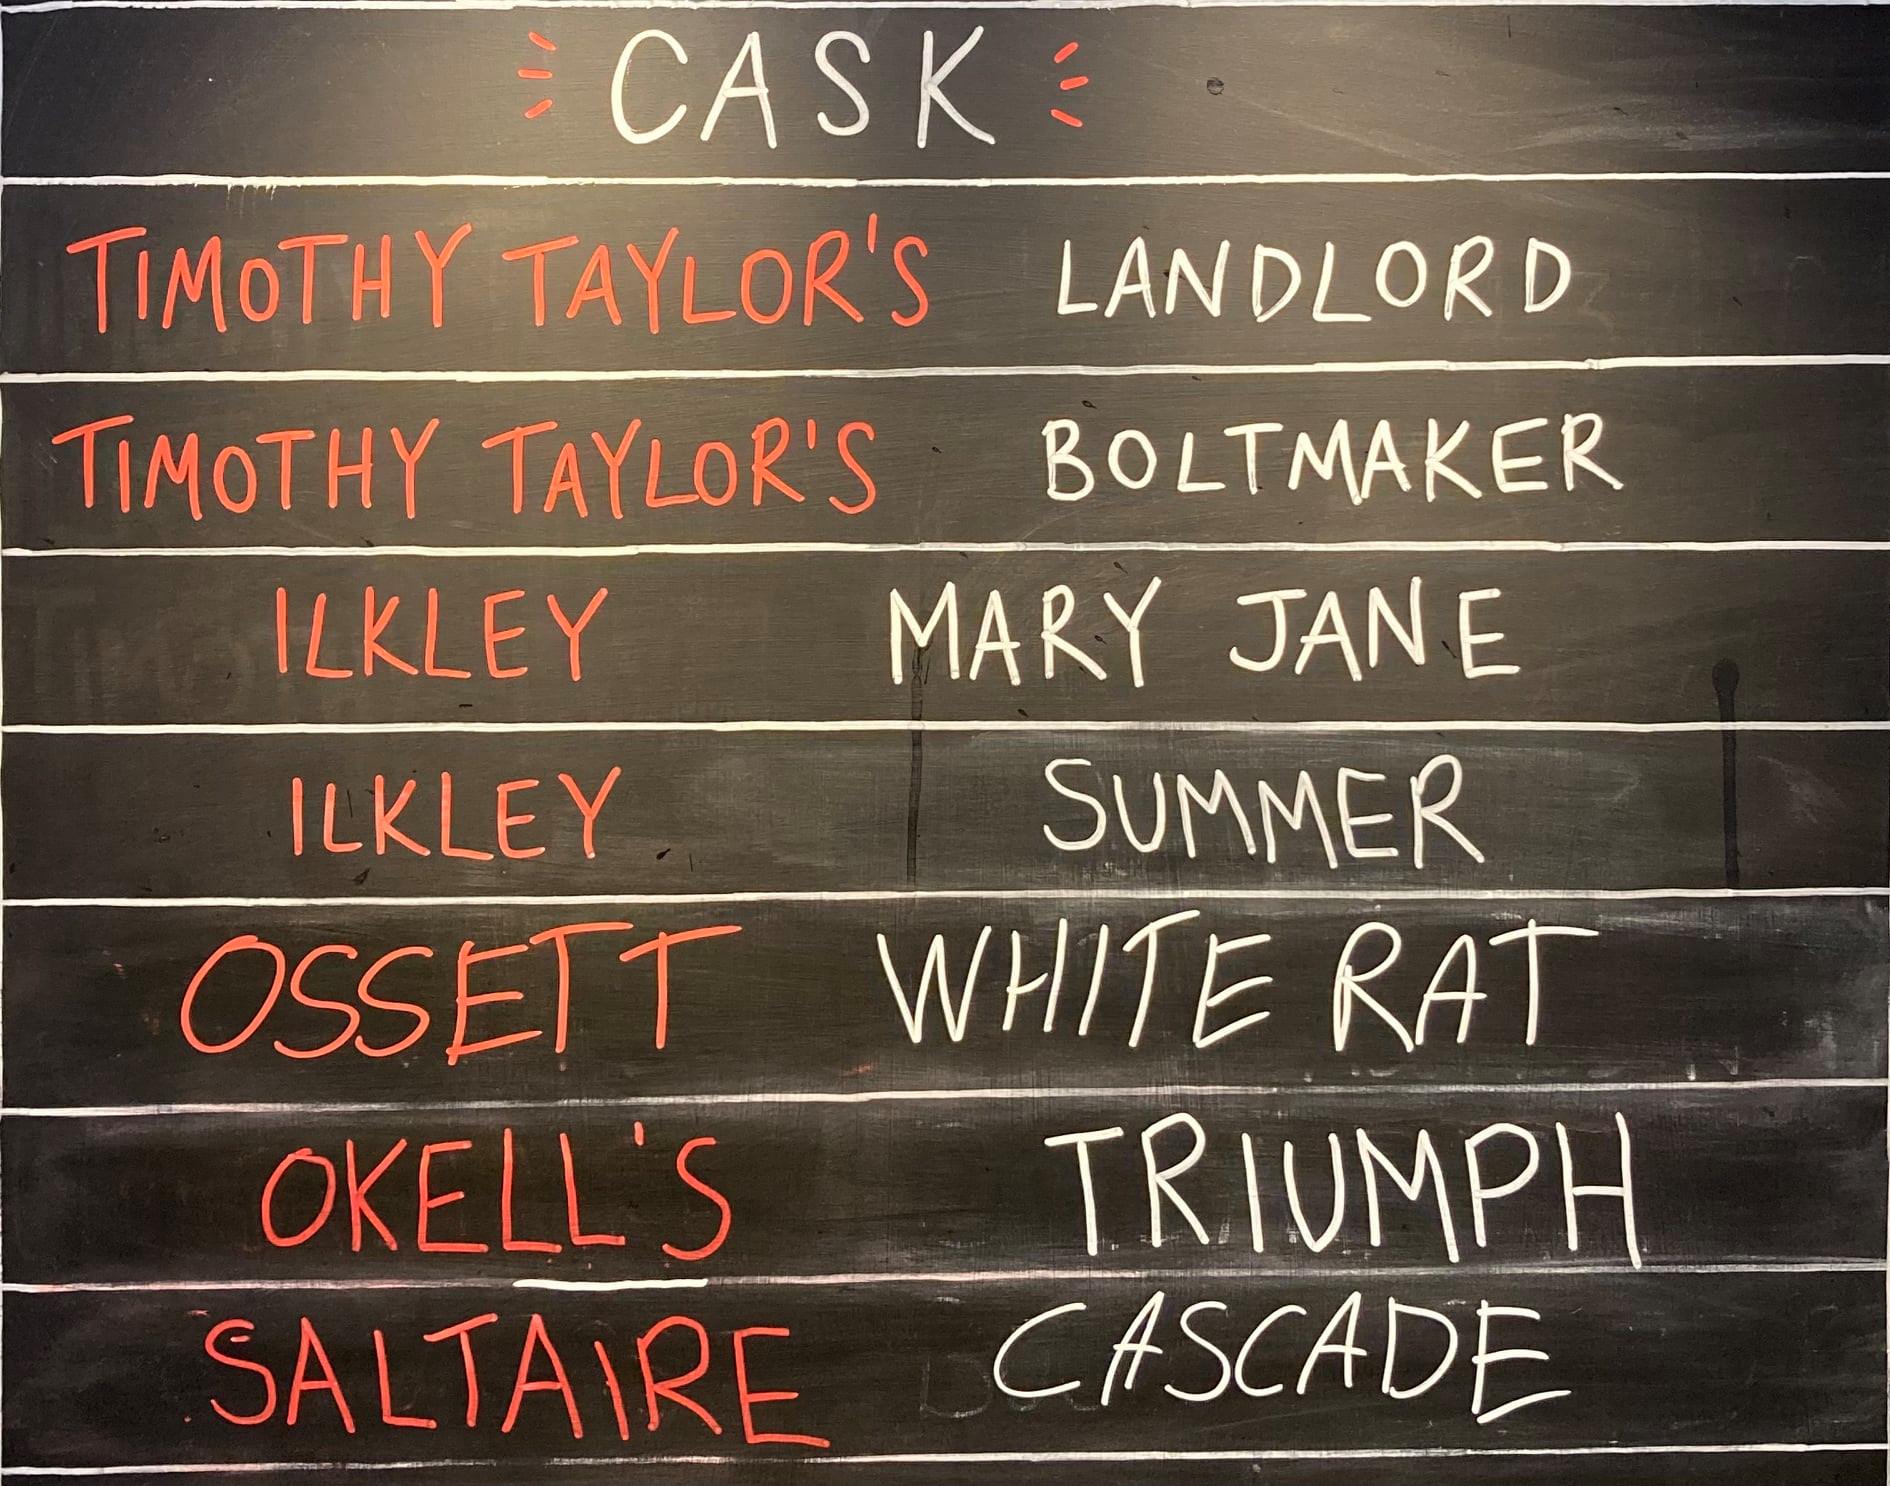 CASK
TIMOTHY TAYLOR'S LANDLORD
TIMOTHY TAYLOR'S BOLTMAKER
ILKLEY MARY JANE
ILKLEY SUMMER
OSSETT WHITE RAT
OKELL'S TRIUMPH
SALTAIRE CASCADE